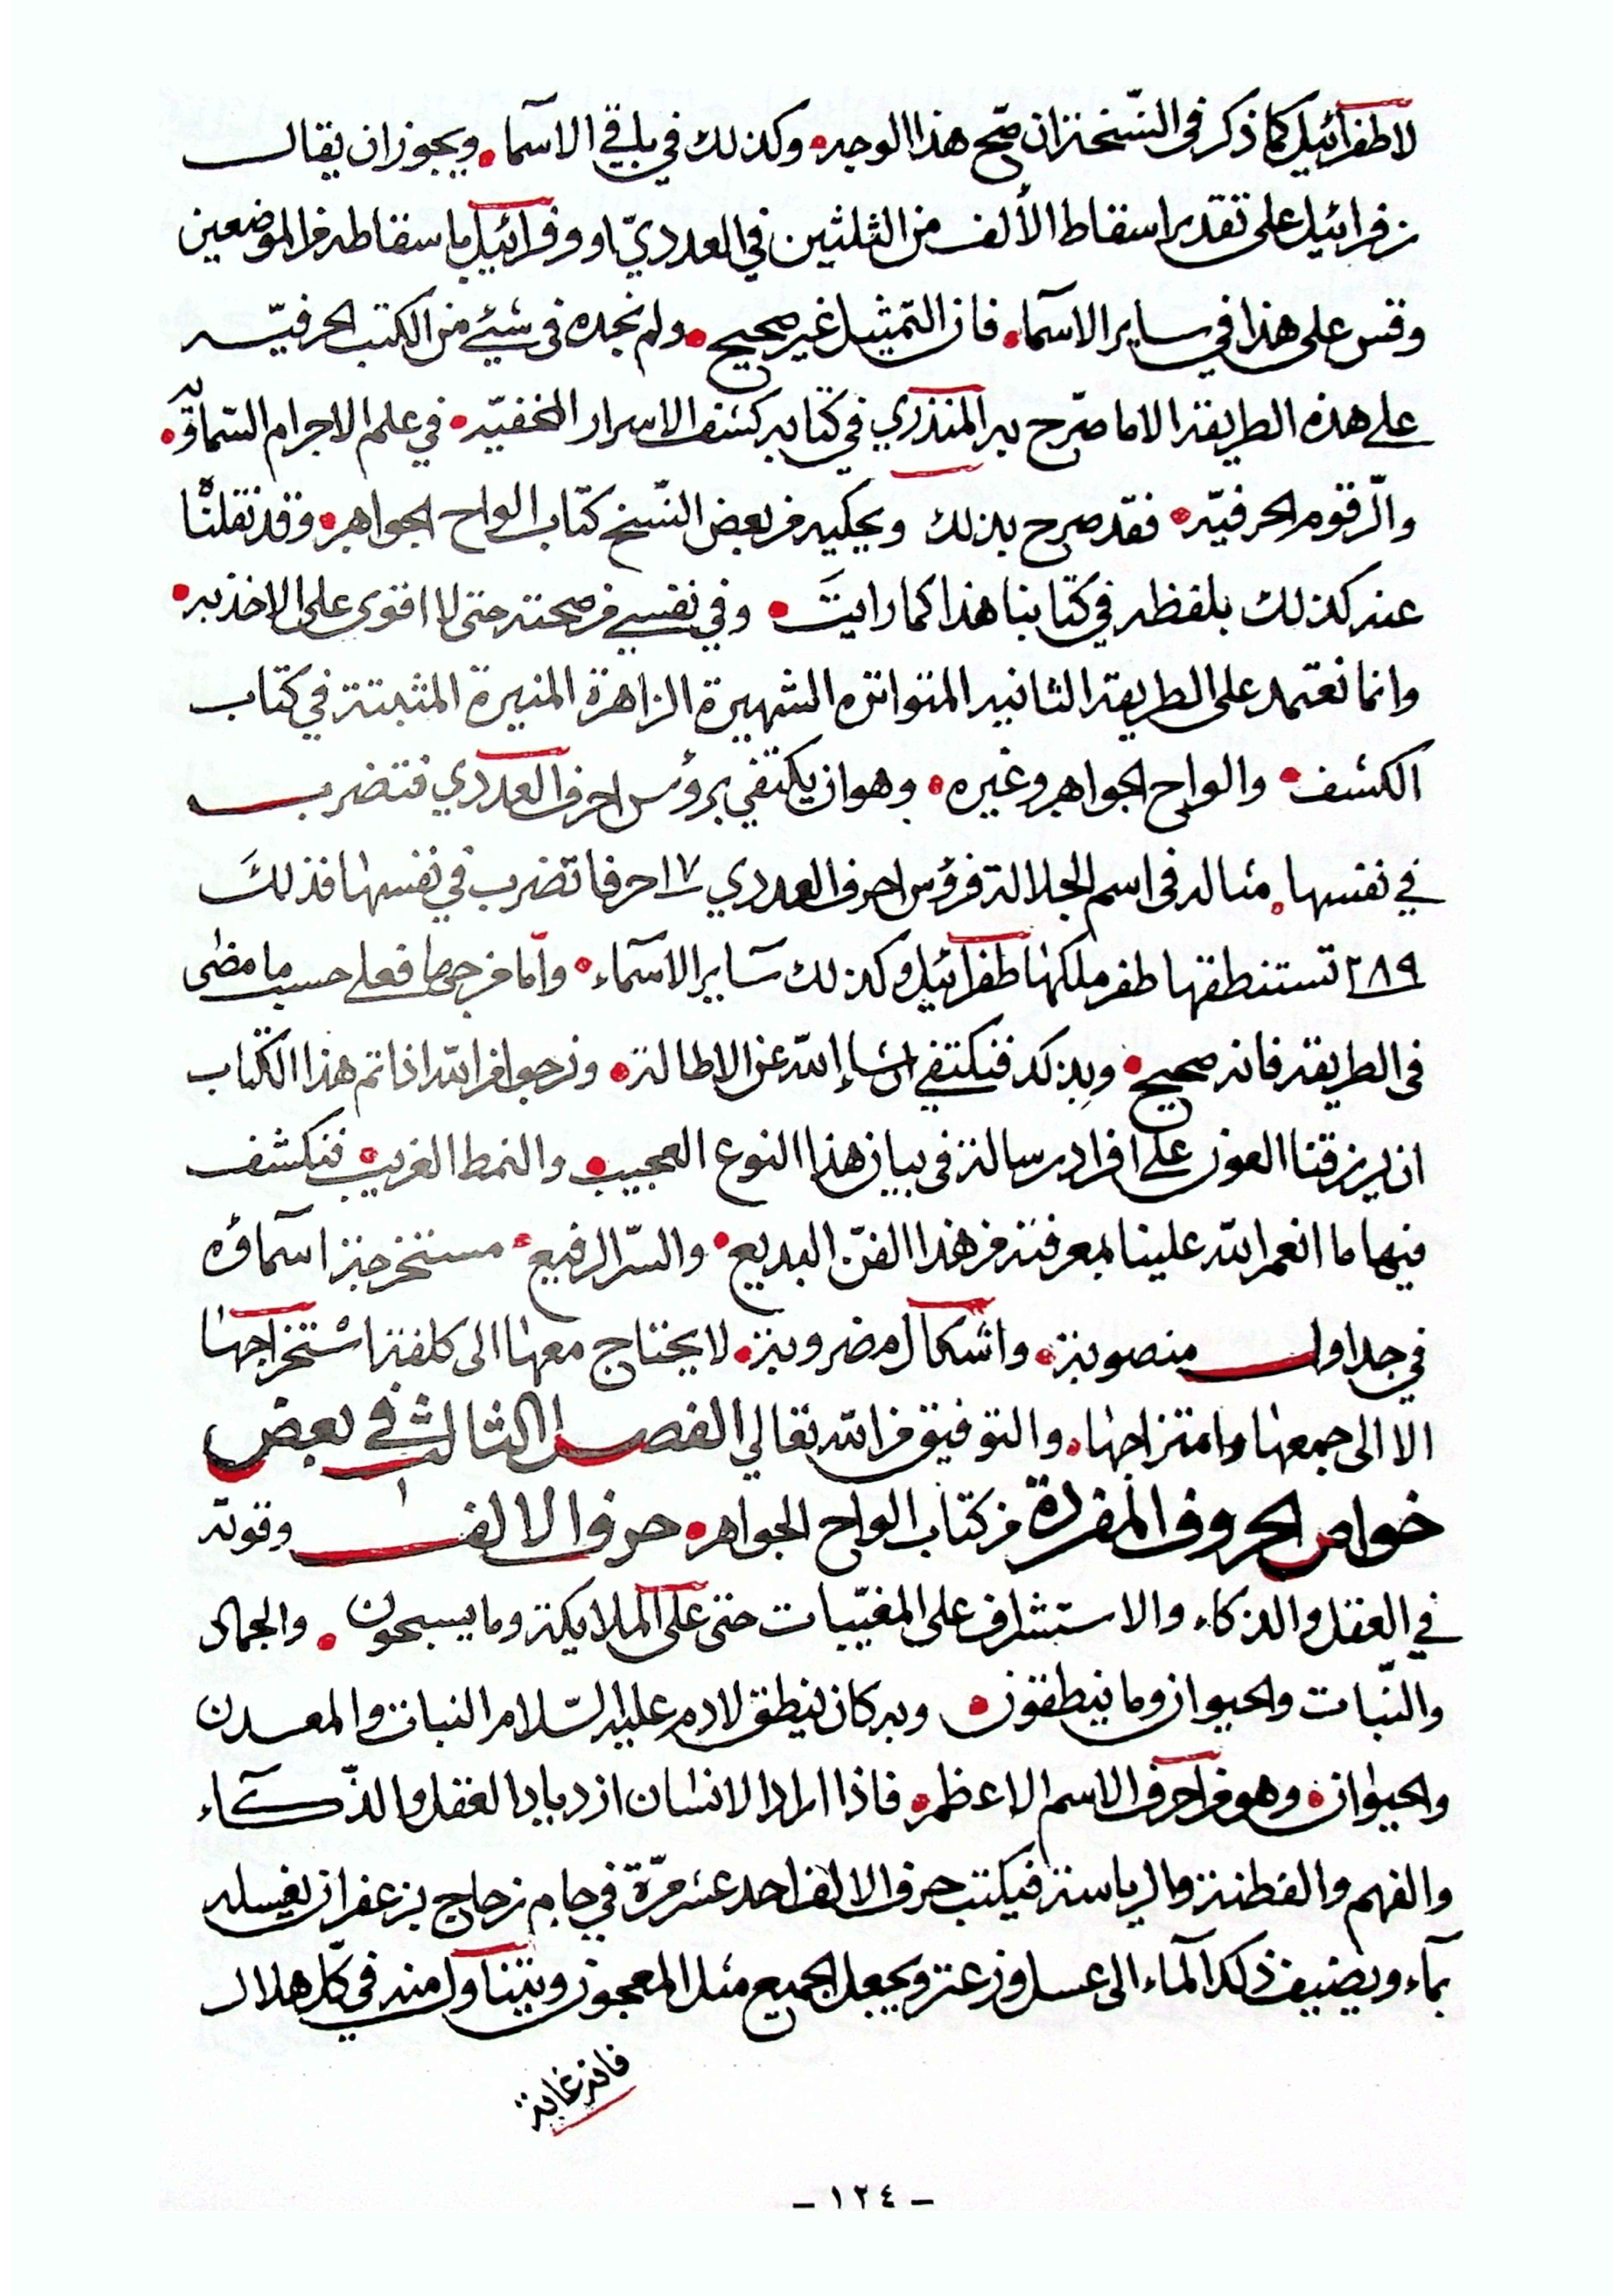 لا طفرائيل كما ذكر في النسخة ان صح هذا الوجه • وكذلك في باقي الاسما • ويجوز ان يقال
زفرائيل على تقدير اسقاط الألف من الثلثين في العددي او وفرائيل باسقاطه من الموضعين
وقس على هذا في ساير الاسما • فان التمثيل غير صحيح • ولم نجده في شيئ من الكتب الحرفيّه
على هذه الطريقة الا ما صرّح به المنذري في كتابه كشف الاسرار المخفيّه • في علم الاجرام السّماويّه •
والرّقوم الحرفيّه • فقد صرح بذلك ويحكيه من بعض النّسخ كتاب الواح الجواهر • وقد نقلنا
عنه كذلك بلفظه في كتابنا هذا كما رايتَ • وفي نفسي من صحته حتى لا اقوى على الاخذ به •
وانما نعتمد على الطريقة الثانيه المتواتره الشهيرة الزاهرة المنيرة المثبتة في كتاب
الكشف • والواح الجواهر وغيره • وهو ان يكتفي برؤس احرف العددي فتضرب
في نفسها • مثاله في اسم الجلالة فرؤس احرف العددي ١٧ حرفا تضرب في نفسها فذلكَ
٢٨٩ تستنطقها طفر ملكها طفرائيل وكذلك سَاير الاسمَاء • وامّا من جمعها فعلى حسب ما مضى
في الطريقة فانه صحيح • وبذلك فنكتفي ان شاء الله عن الاطالة • ونرجو من الله اذا تم هذا الكتاب
ان يرزقنا العون على افراد رسالة في بيان هذا النوع العجيب • والنمط الغريب • فنكشف
فيها ما انعم الله علينا بمعرفته من هذا الفنّ البديع • والسّر الرفيع • مستخرجة اسماؤه
في جداول منصوبة • واشكال مضروبة • لا يحتاج معها الى كلفة استخراجها
الا الى جمعها وامتزاجها • والتوفيق من الله تعالي الفصل الثالث في بعض
خواص الحروف المفردة من كتاب الواح الجواهر • حرف الالف ا وقوته
في العقل والذكاء والاستشراف على المغيّبات حتى على الملايكة وما يسبحون • والجماد
والنّبات والحيوان وما ينطقون • وبه كان ينطق لادم عليه السّلام النبات والمعدن
والحيوان • وهو من احرف الاسم الاعظم • فاذا اراد الانسان ازدياد العقل والذّكآء
والفهم والفطنة والرياسة فيكتب حرف الالف احد عشر مرّة في جام زجاج بزعفران يغسله
بمآء ويضيف ذلك المآء الى عسل وزعتر ويجعل الجميع مثل المعجون ويتناول منه في كلّ هلال
فانه غاية
- ١٢٤ -